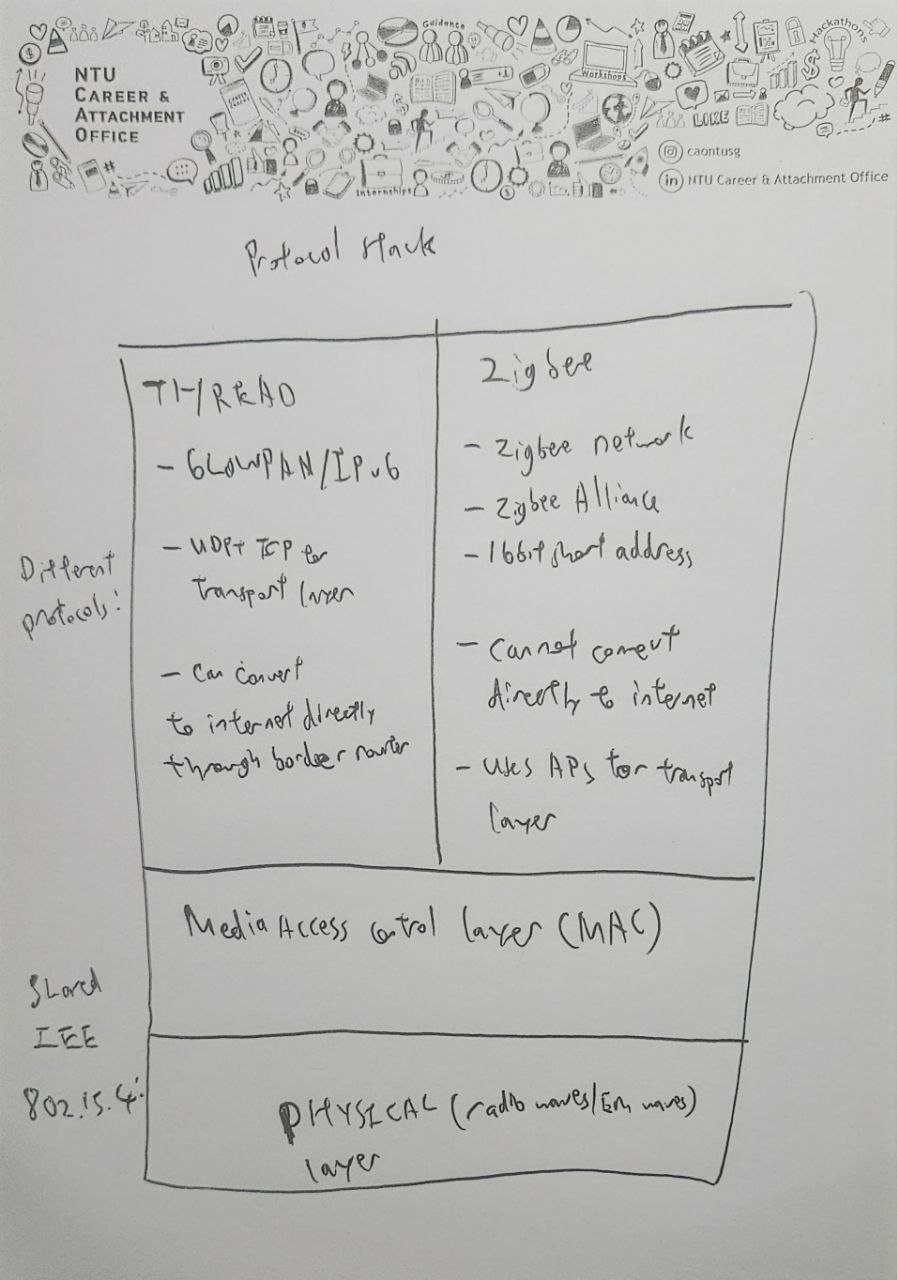 Guidance
Hackathons
Workshops
+1
LIKE
Internships
NTU
CAREER &
ATTACHMENT
OFFICE
caontusg
in NTU Career & Attachment Office
Protocol stack
THREAD
- 6LOWPAN/IPv6
- UDP+ TCP for
transport layer
- Can convert
to internet directly
through border router
Zigbee
- Zigbee network
- Zigbee Alliance
- 16bit short address
- Cannot connect
directly to internet
- Uses APS for transport
layer
Different
protocols:
Media Access control layer (MAC)
Shared
IEE
802.15.4:
PHYSICAL (radio waves/Em waves)
layer